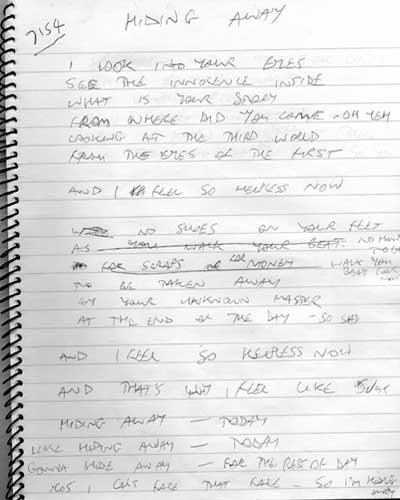 HIDING AWAY
7154
I LOOK INTO YOUR EYES
SEE THE INNOCENCE INSIDE
WHAT IS YOUR STORY
FROM WHERE DID YOU COME - OH YEH
LOOKING AT THE THIRD WORLD
FROM THE EYES OF THE FIRST
AND I FEEL SO HELPLESS NOW
NO SHOES ON YOUR FEET
AS YOU WALK YOUR BEAT. NO
FOR SCRAPS OR FOR MONEY WALK YOU
TO BE TAKEN AWAY BEAT FOR
BY YOUR UNKNOWN MASTER
AT THE END OF THE DAY - SO SAD
AND I FEEL SO HELPLESS NOW
AND THAT'S WHY I FEEL LIKE
HIDING AWAY - TODAY
LIKE HIDING AWAY - TODAY
GONNA HIDE AWAY - FOR THE REST OF DAY
'COS I CAN'T FACE THAT FACE - SO I'M HIDING AWAY